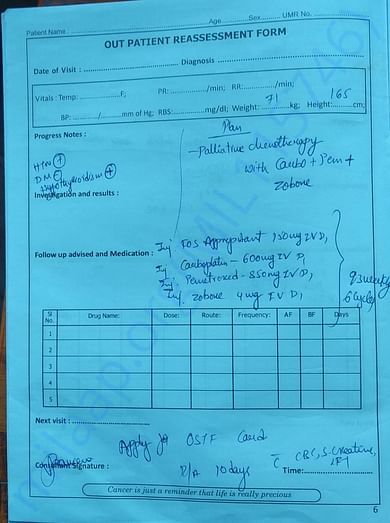 Patient Name : Age Sex UMR No.
OUT PATIENT REASSESSMENT FORM
Date of Visit : Diagnosis
Vitals : Temp: F; PR: /min; RR: /min;
BP: / mm of Hg; RBS: mg/dl; Weight: 71 kg; Height: 165 cm;
Progress Notes : Plan
- Palliative chemotherapy
with Carbo + Pem +
HTN +
DM
Hypothyroidism +
zobone
Investigation and results :
Follow up advised and Medication : Inj FOS Aprepitant 150mg IV D1
Inj Carboplatin - 600mg IV D1
Inj Pemetrexed - 850mg IV D1
Inj. zobone 4mg IV D1
6 cycles
Sl No. Drug Name: Dose: Route: Frequency: AF BF Days
1
2
3
4
5
Next visit :
Apply for Card
Consultant Signature : R/A 10 days c CBC, S. Creatinine, LFT
Time:
Cancer is just a reminder that life is really precious
6